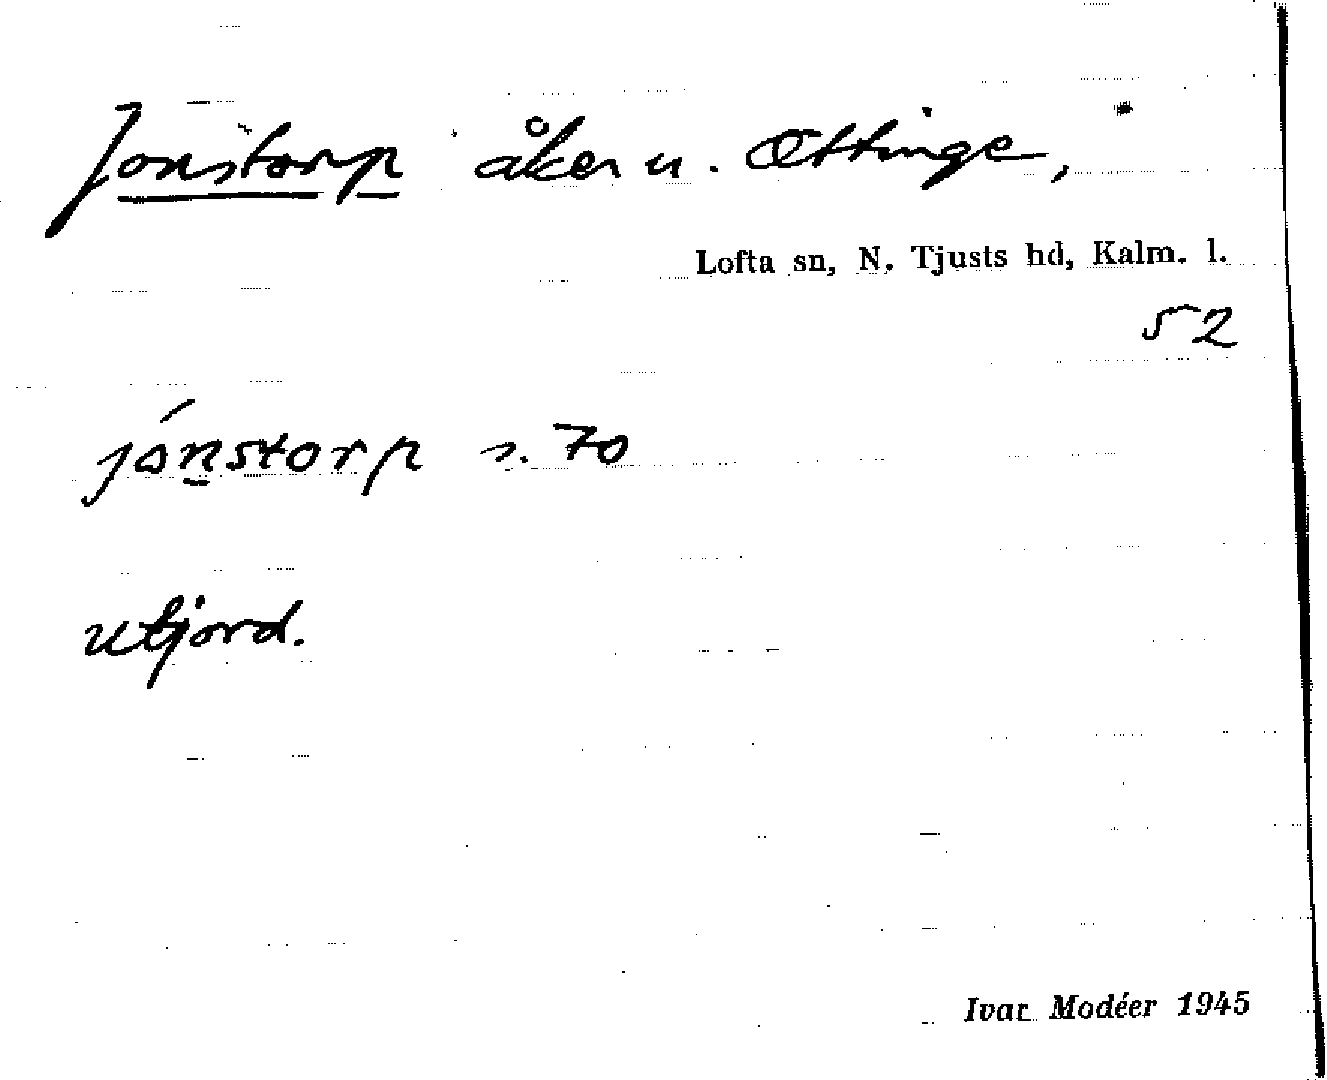 Jonstorp åker u. Ottinge,
Lofta sn, N. Tjusts hd, Kalm. l.
52
jónstorp s. 70
utjord.
Ivar Modéer 1945